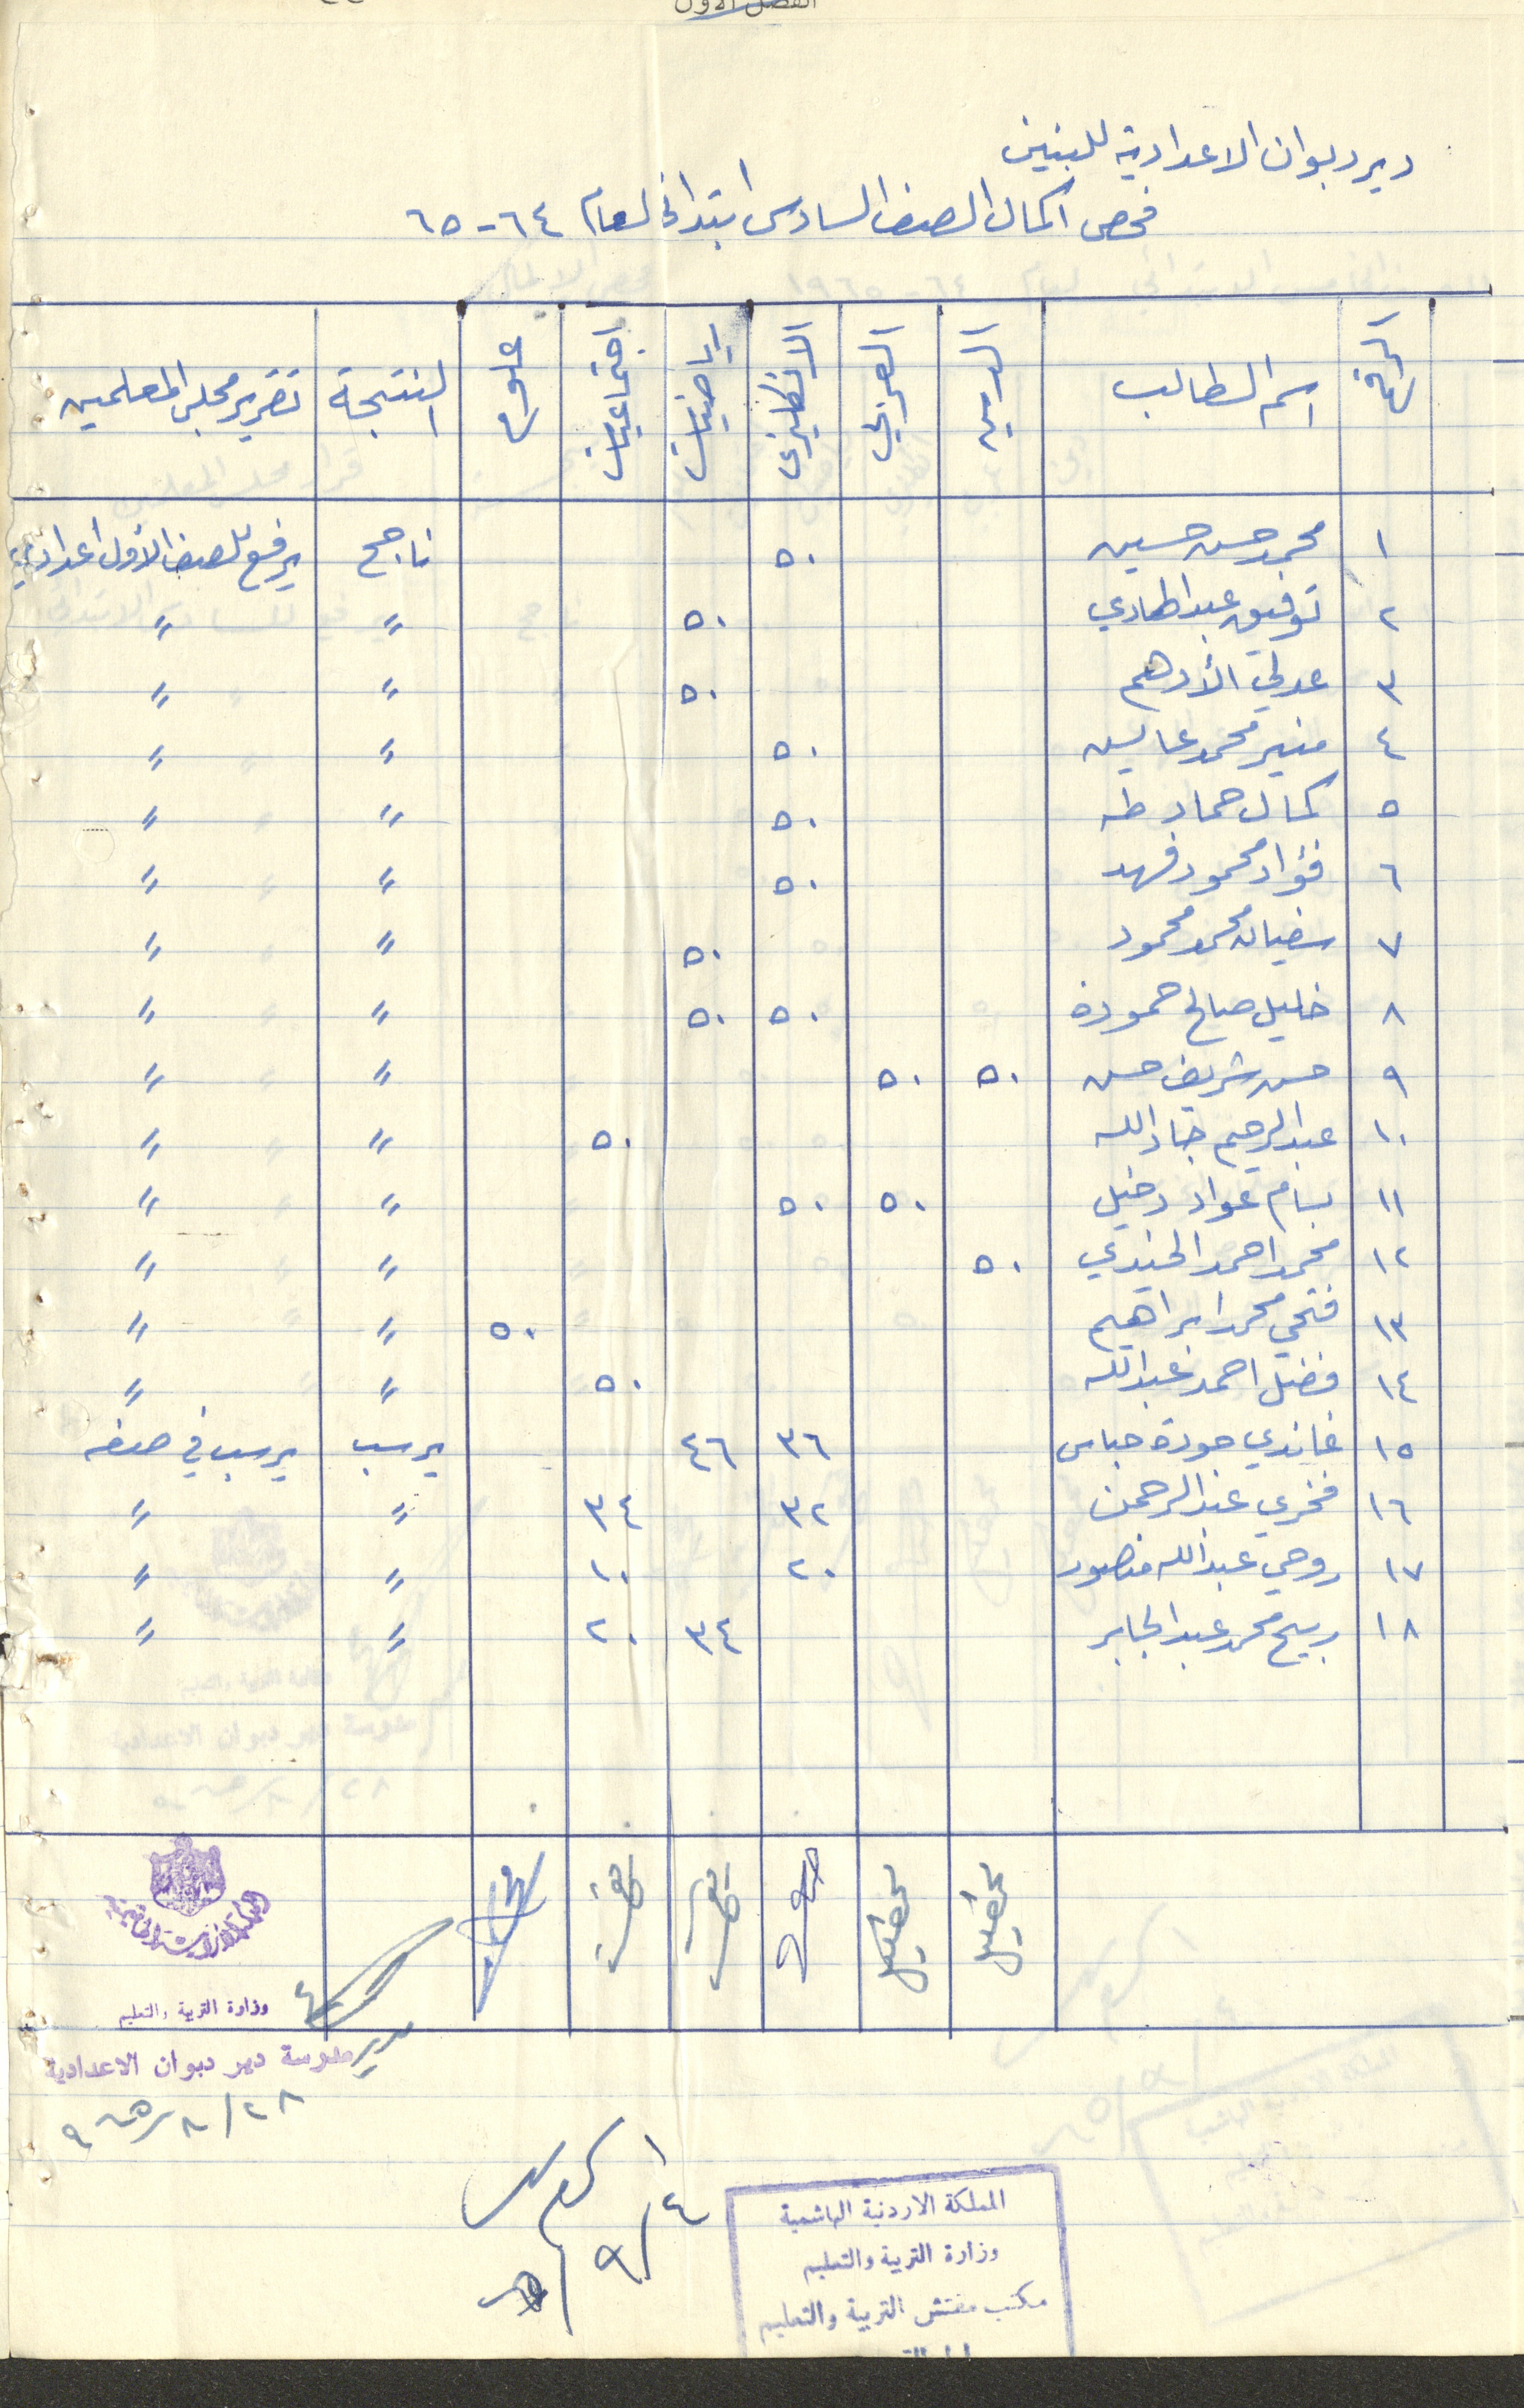 الفصل الاول
ديردبوان الاعدادية للبنين
فحص اكمال الصف السادس ابتدائي لعام ٦٤-٦٥
اسم الطالب الدين العربي الانكليزي رياضيات اجتماعيات علوم النتيجة تقرير مجلس المعلمين
١ محمد حسن حسين ٥٠ ناجح يرفع للصف الأول اعدادي
٢ توفيق عبد الهادي ٥٠ " "
٣ عدلي الأدهم ٥٠ " "
٤ منير محمد عايش ٥٠ " "
٥ كمال حماد طه ٥٠ " "
٦ فؤاد محمود فهد ٥٠ " "
٧ سفيان محمد محمود ٥٠ " "
٨ خليل صالح حمودة ٥٠ ٥٠ " "
٩ حسن شريف حسن ٥٠ ٥٠ " "
١٠ عبد الرحيم جاد الله ٥٠ " "
١١ بسام عواد دخيل ٥٠ ٥٠ " "
١٢ محمد احمد ٥٠ " "
١٣ فتحي محمد ابراهيم ٥٠ " "
١٤ فضل احمد عبد الله ٥٠ " "
١٥ غاندي جودة عباس ٣٦ ٤٦ يرسب يرسب في صفه
١٦ فخري عبد الرحمن ٣٢ ٣٤ " "
١٧ روحي عبد الله منصور ٢٠ ١٠ " "
١٨ ربيع محمد عبد الجابر ٣٤ ٢٠ " "
المملكة الاردنية الهاشمية
وزارة التربية والتعليم
مدير مدرسة دير دبوان الاعدادية
٢٨/٨/٩٦٥
٤/٩/٦٥
المملكة الاردنية الهاشمية
وزارة التربية والتعليم
مكتب مفتش التربية والتعليم